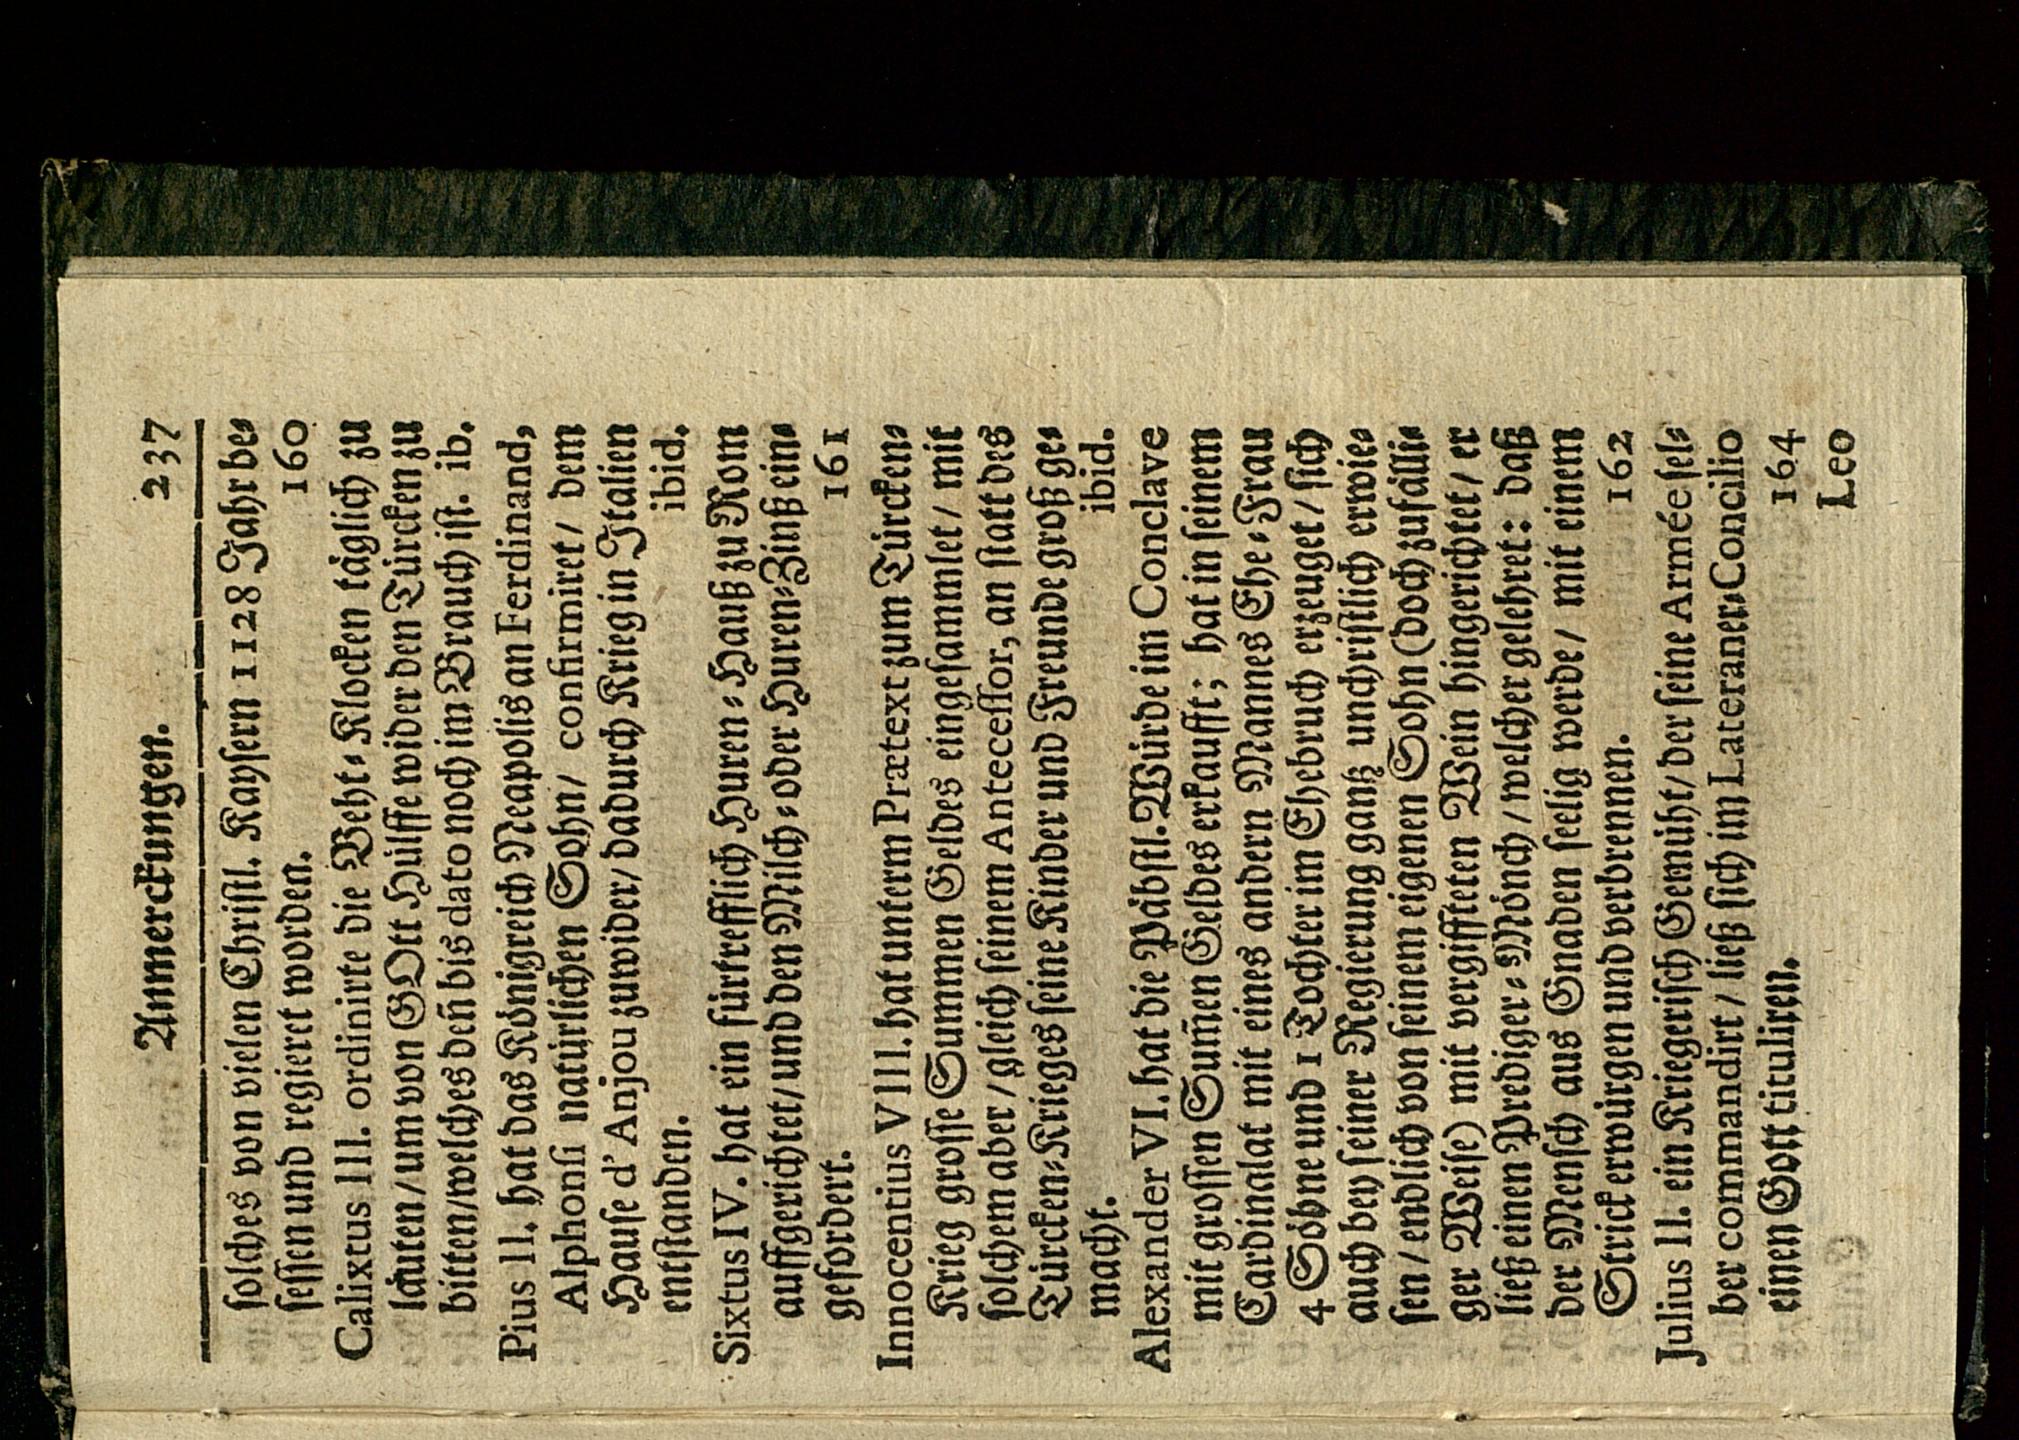 Anmerckungen. 237
solches von vielen Christl. Kaysern 1128 Jahr be-
sessen und regieret worden. 160
Calixtus III. ordinirte die Beht-Klocken täglich zu
läuten/um von GOtt Hülffe wider den Türcken zu
bitten/welches deñ bis dato noch im Brauch ist. ib.
Pius II. hat das Königreich Neapolis an Ferdinand,
Alphonsi natürlichen Sohn/ confirmiret/ dem
Hause d'Anjou zuwider/dadurch Krieg in Italien
entstanden. ibid.
Sixtus IV. hat ein fürtrefflich Huren-Hauß zu Rom
auffgerichtet/und den Milch-oder Huren-Zinß ein-
gefordert. 161
Innocentius VIII. hat unterm Prætext zum Türcken-
Krieg grosse Summen Geldes eingesammlet/ mit
solchem aber/gleich seinem Antecessor, an statt des
Türcken-Krieges seine Kinder und Freunde groß ge-
macht. ibid.
Alexander VI. hat die Päbstl. Würde im Conclave
mit grossen Sum̃en Geldes erkaufft; hat in seinem
Cardinalat mit eines andern Mannes Ehe-Frau
4 Söhne und 1 Tochter im Ehebruch erzeuget/ sich
auch bey seiner Regierung gantz unchristlich erwie-
sen/endlich von seinem eigenen Sohn (doch zufälli-
ger Weise) mit vergiffteten Wein hingerichtet/ er
ließ einen Prediger-Mönch/welcher gelehret: daß
der Mensch aus Gnaden seelig werde/ mit einem
Strick erwürgen und verbrennen. 162
Julius II. ein Kriegerisch Gemüht/der seine Armée sel-
ber commandirt/ ließ sich im Lateraner-Concilio
einen Gott tituliren. 164
Leo